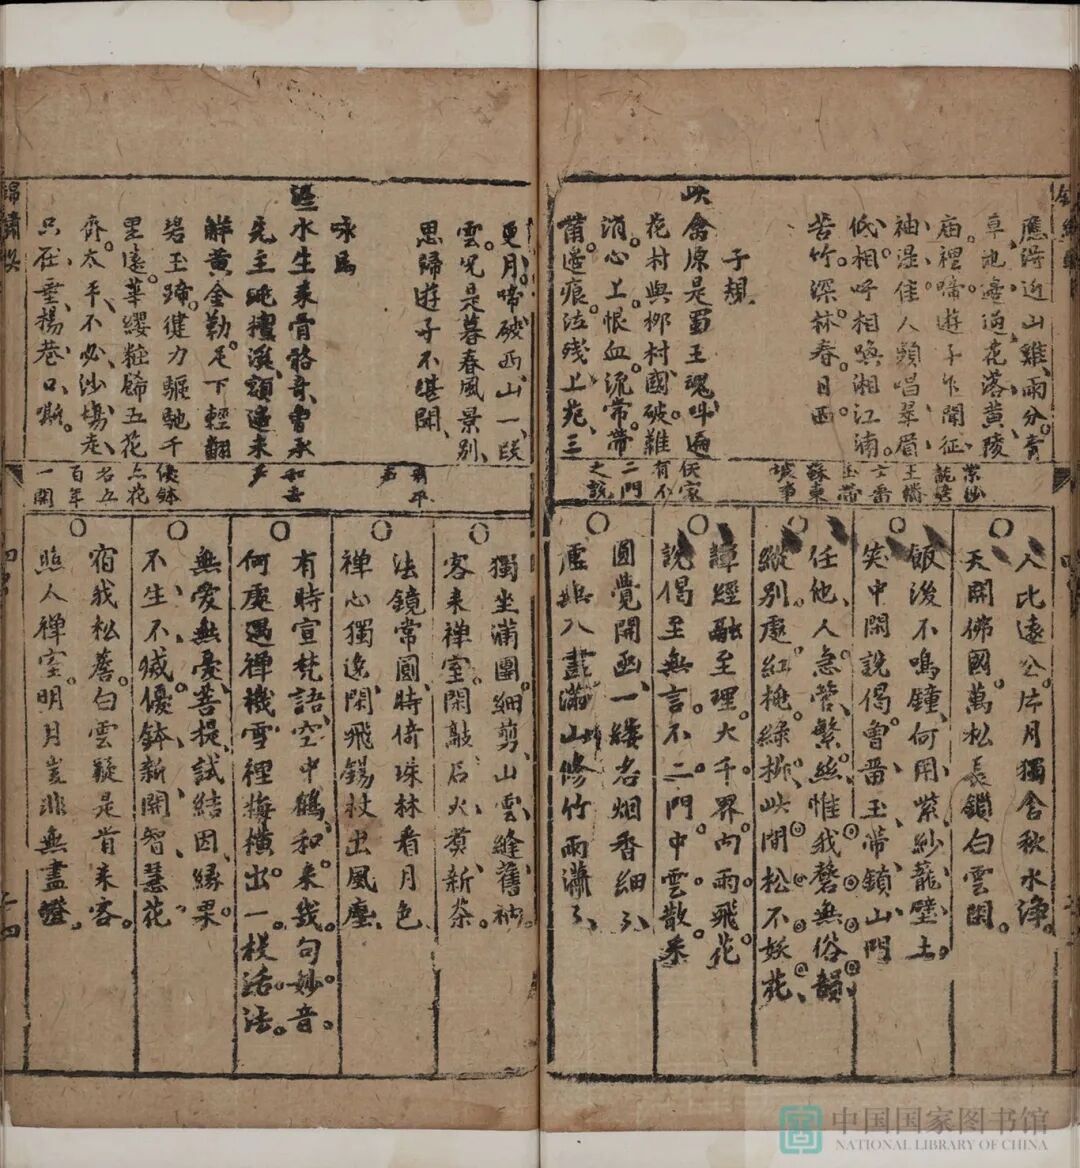 應得近山雞雨分青
草池邊過花落黃陵
廟裡啼遊子乍聞征
袖湿佳人頻唱翠眉
低相呼相喚湘江浦
苦竹深林春日西
子規
此禽原是蜀王魂叫遍
花村與柳村國破難
消心上恨血流常帶
舊邊痕泣殘上苑三
紫沙
籠壁
王
士番
玉帶
蘇東
坡事
侯家
有不
二門
之說
人比遠公片月獨含秋水淨
天開佛國萬松長鎖白雲閑
飯後不鳴鐘何用紫紗籠壁土
笑中閑說偈會畨玉帶鎖山門
任他人急管繁絲惟我磬無俗韻
縱別處紅桃綠柳此間松不妖花
譚經融至理大千界內雨飛花
說偈至無言不二門中雲散采
圓覺開函一縷名烟香細〻
虛無入畫滿山修竹雨瀟〻
更月啼破西山一段
雲況是暮春風景別
思歸遊子不堪聞
咏馬
渥水生來骨骼奇曾承
先主跳檀溪額邊未
觧黃金勒足下輕翻
碧玉蹄健力驅馳千
里遠華纓粧歸五花
齊太平不必沙場走
只在垂楊巷口嘶
優鉢
𠆳花
名五
百年
一開
獨坐滿團細剪山雲縫舊衲
客來禪室閑敲石火煑新茶
法鏡常圓時倚珠林看月色
禪心獨逸閑飛錫杖出風塵
有時宣梵語空中鶴和來我句妙音
何處遇禪機雪裡梅橫出一枝活法
無愛無憂菩提試結因緣果
不生不滅優鉢新開智慧花
宿我松菴白雲疑是首來客
照人禅室明月豈非無盡燈
中国国家图书馆
NATIONAL LIBRARY OF CHINA